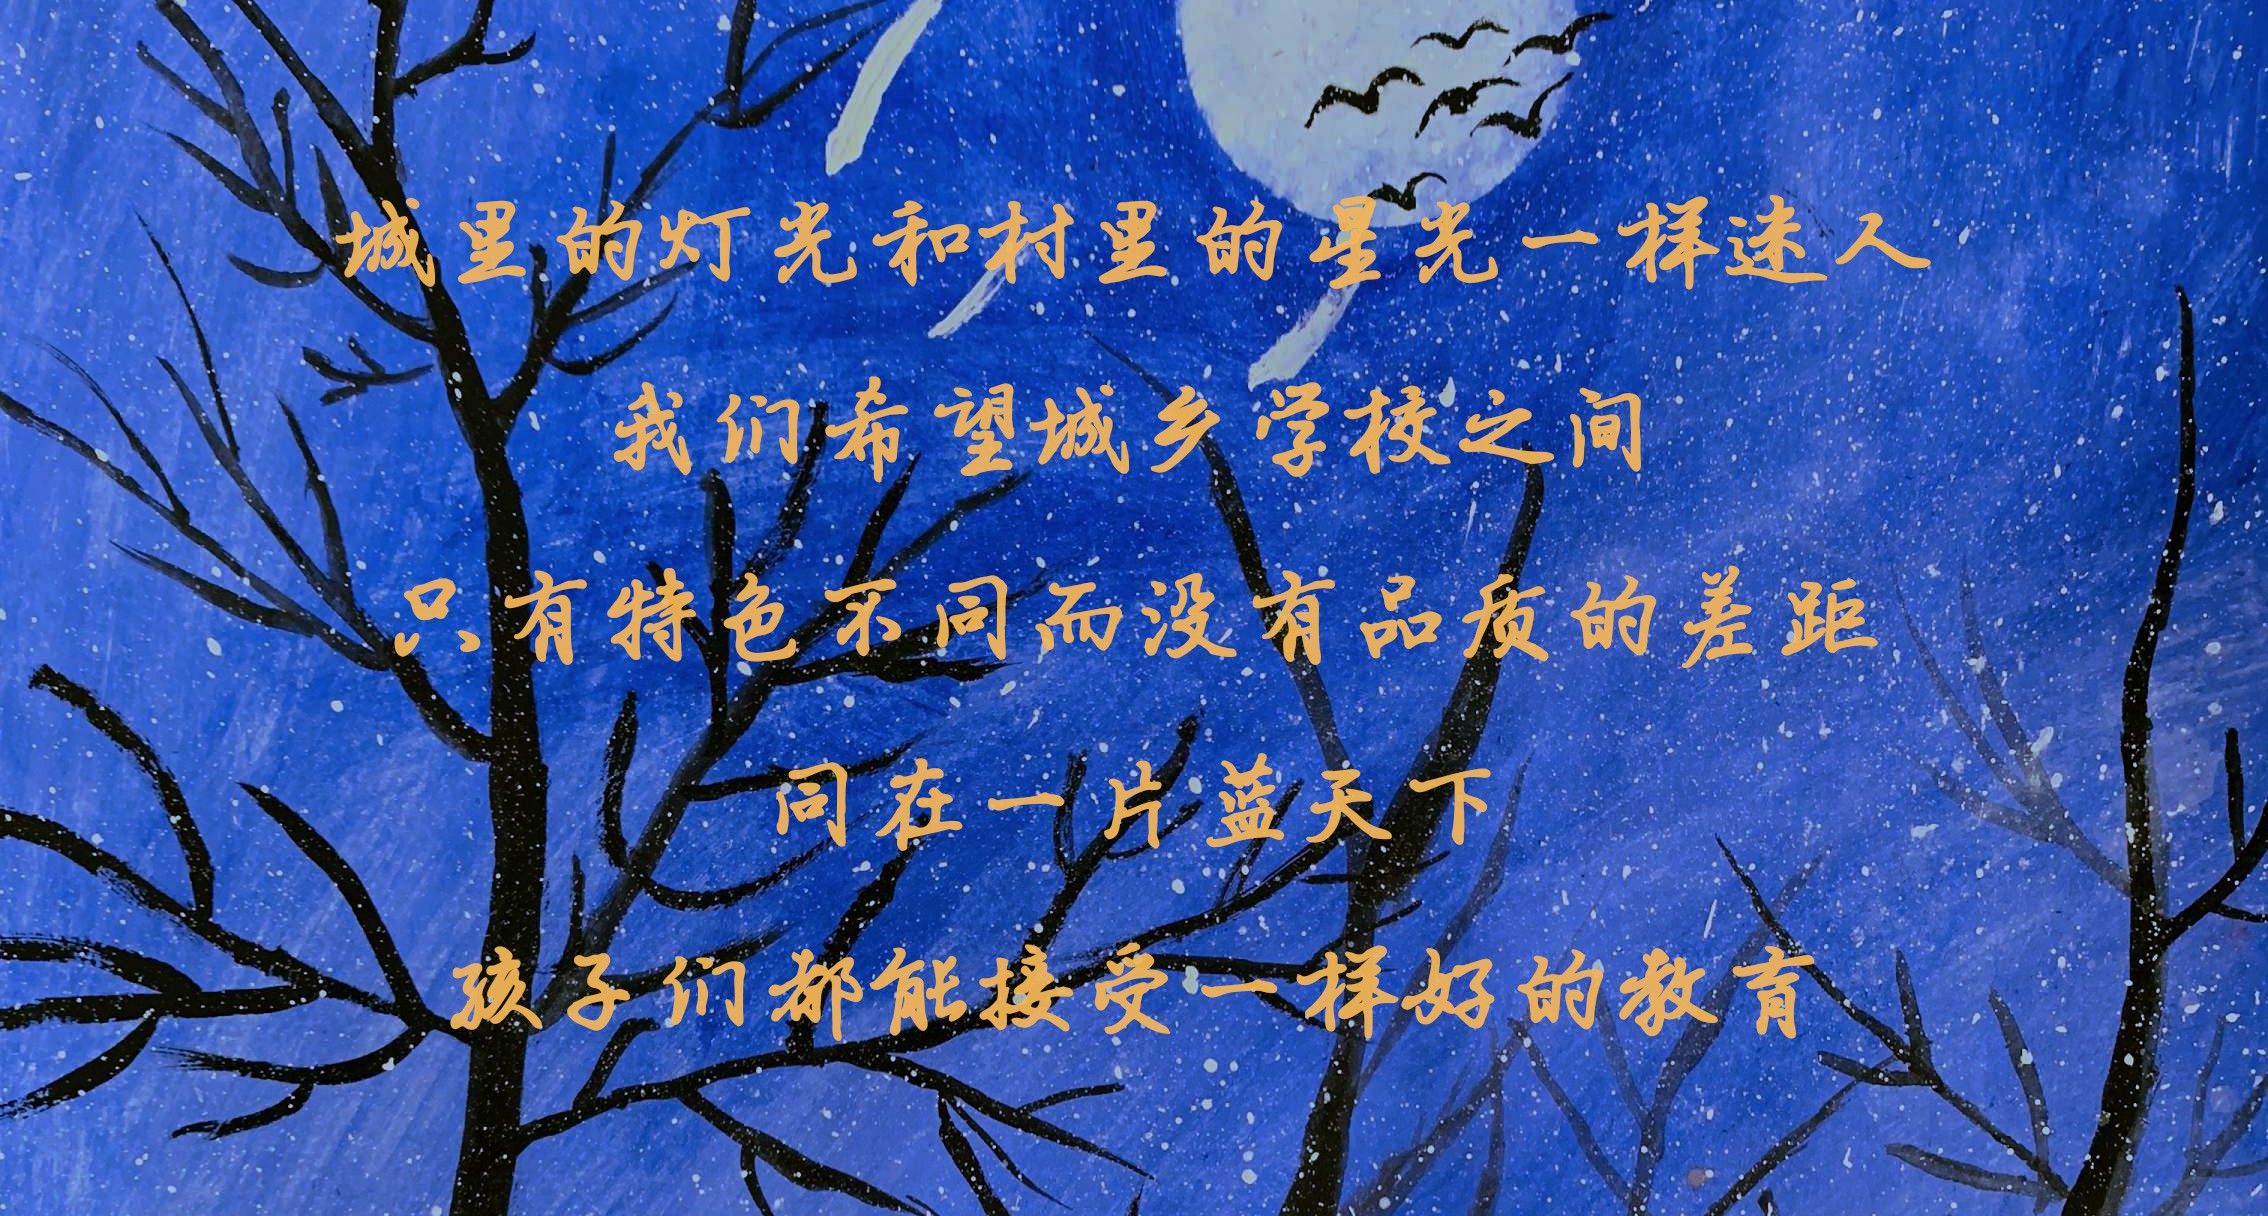 城里的灯光和村里的星光一样迷人
我们希望城乡学校之间
只有特色不同而没有品质的差距
同在一片蓝天下
孩子们都能接受一样好的教育